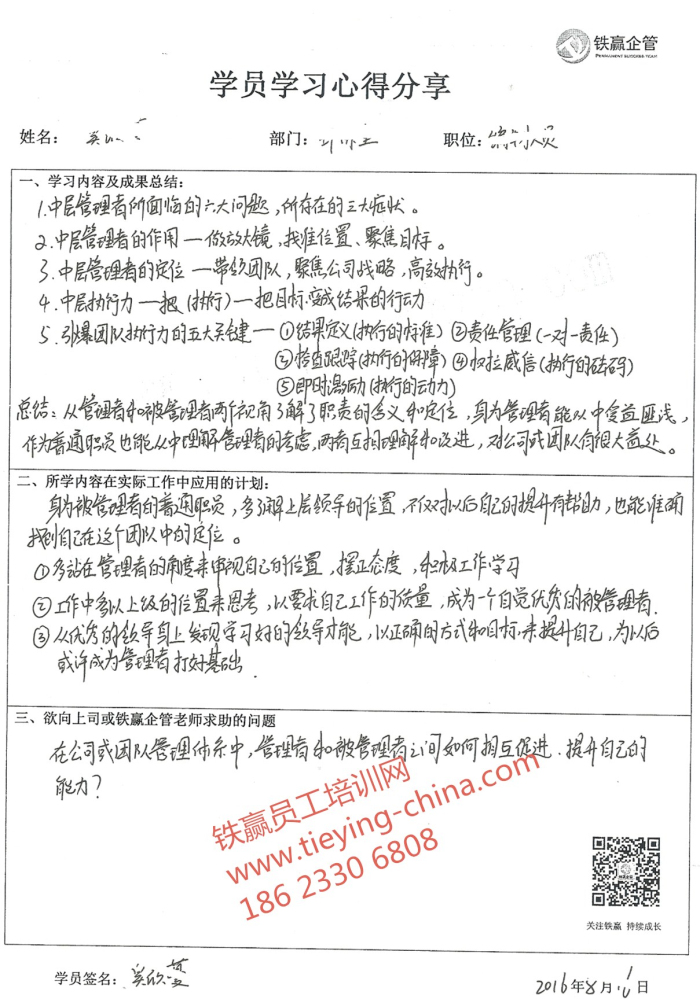 铁赢企管
PERMANENT SUCCESS TEAM
学员学习心得分享
姓名： 部门： 职位：
一、学习内容及成果总结：
1.中层管理者所面临的六大问题，所存在的三大症状。
2.中层管理者的作用—做放大镜，找准位置、聚焦目标。
3.中层管理者的定位—带领团队，聚焦公司战略，高效执行。
4.中层执行力—把(执行)—把目标变成结果的行动
5.引爆团队执行力的五大关键—①结果定义(执行的标准) ②责任管理(一对一责任)
③检查跟踪(执行的保障) ④权拉威信(执行的砝码)
⑤即时激励(执行的动力)
总结：从管理者和被管理者两个视角了解了职责的含义和定位，身为管理者能从中受益匪浅，
作为普通职员也能从中理解管理者的考虑，两者互相理解和促进，对公司或团队有很大益处。
二、所学内容在实际工作中应用的计划：
身为被管理者的普通职员，多了解上层领导的位置，不仅对以后自己的提升有帮助，也能准确
找到自己在这个团队中的定位。
①多站在管理者的角度来审视自己的位置，摆正态度，积极工作学习
②工作中多以上级的位置来思考，以要求自己工作的质量，成为一个自觉优秀的被管理者.
③从优秀的领导身上发现学习好的领导才能，以正确的方式和目标，来提升自己，为以后
或许成为管理者打好基础.
三、欲向上司或铁赢企管老师求助的问题
在公司或团队管理体系中，管理者和被管理者之间如何相互促进.提升自己的
能力？
铁赢员工培训网
www.tieying-china.com
186 2330 6808
关注铁赢 持续成长
学员签名：吴欣
2016年8月 日